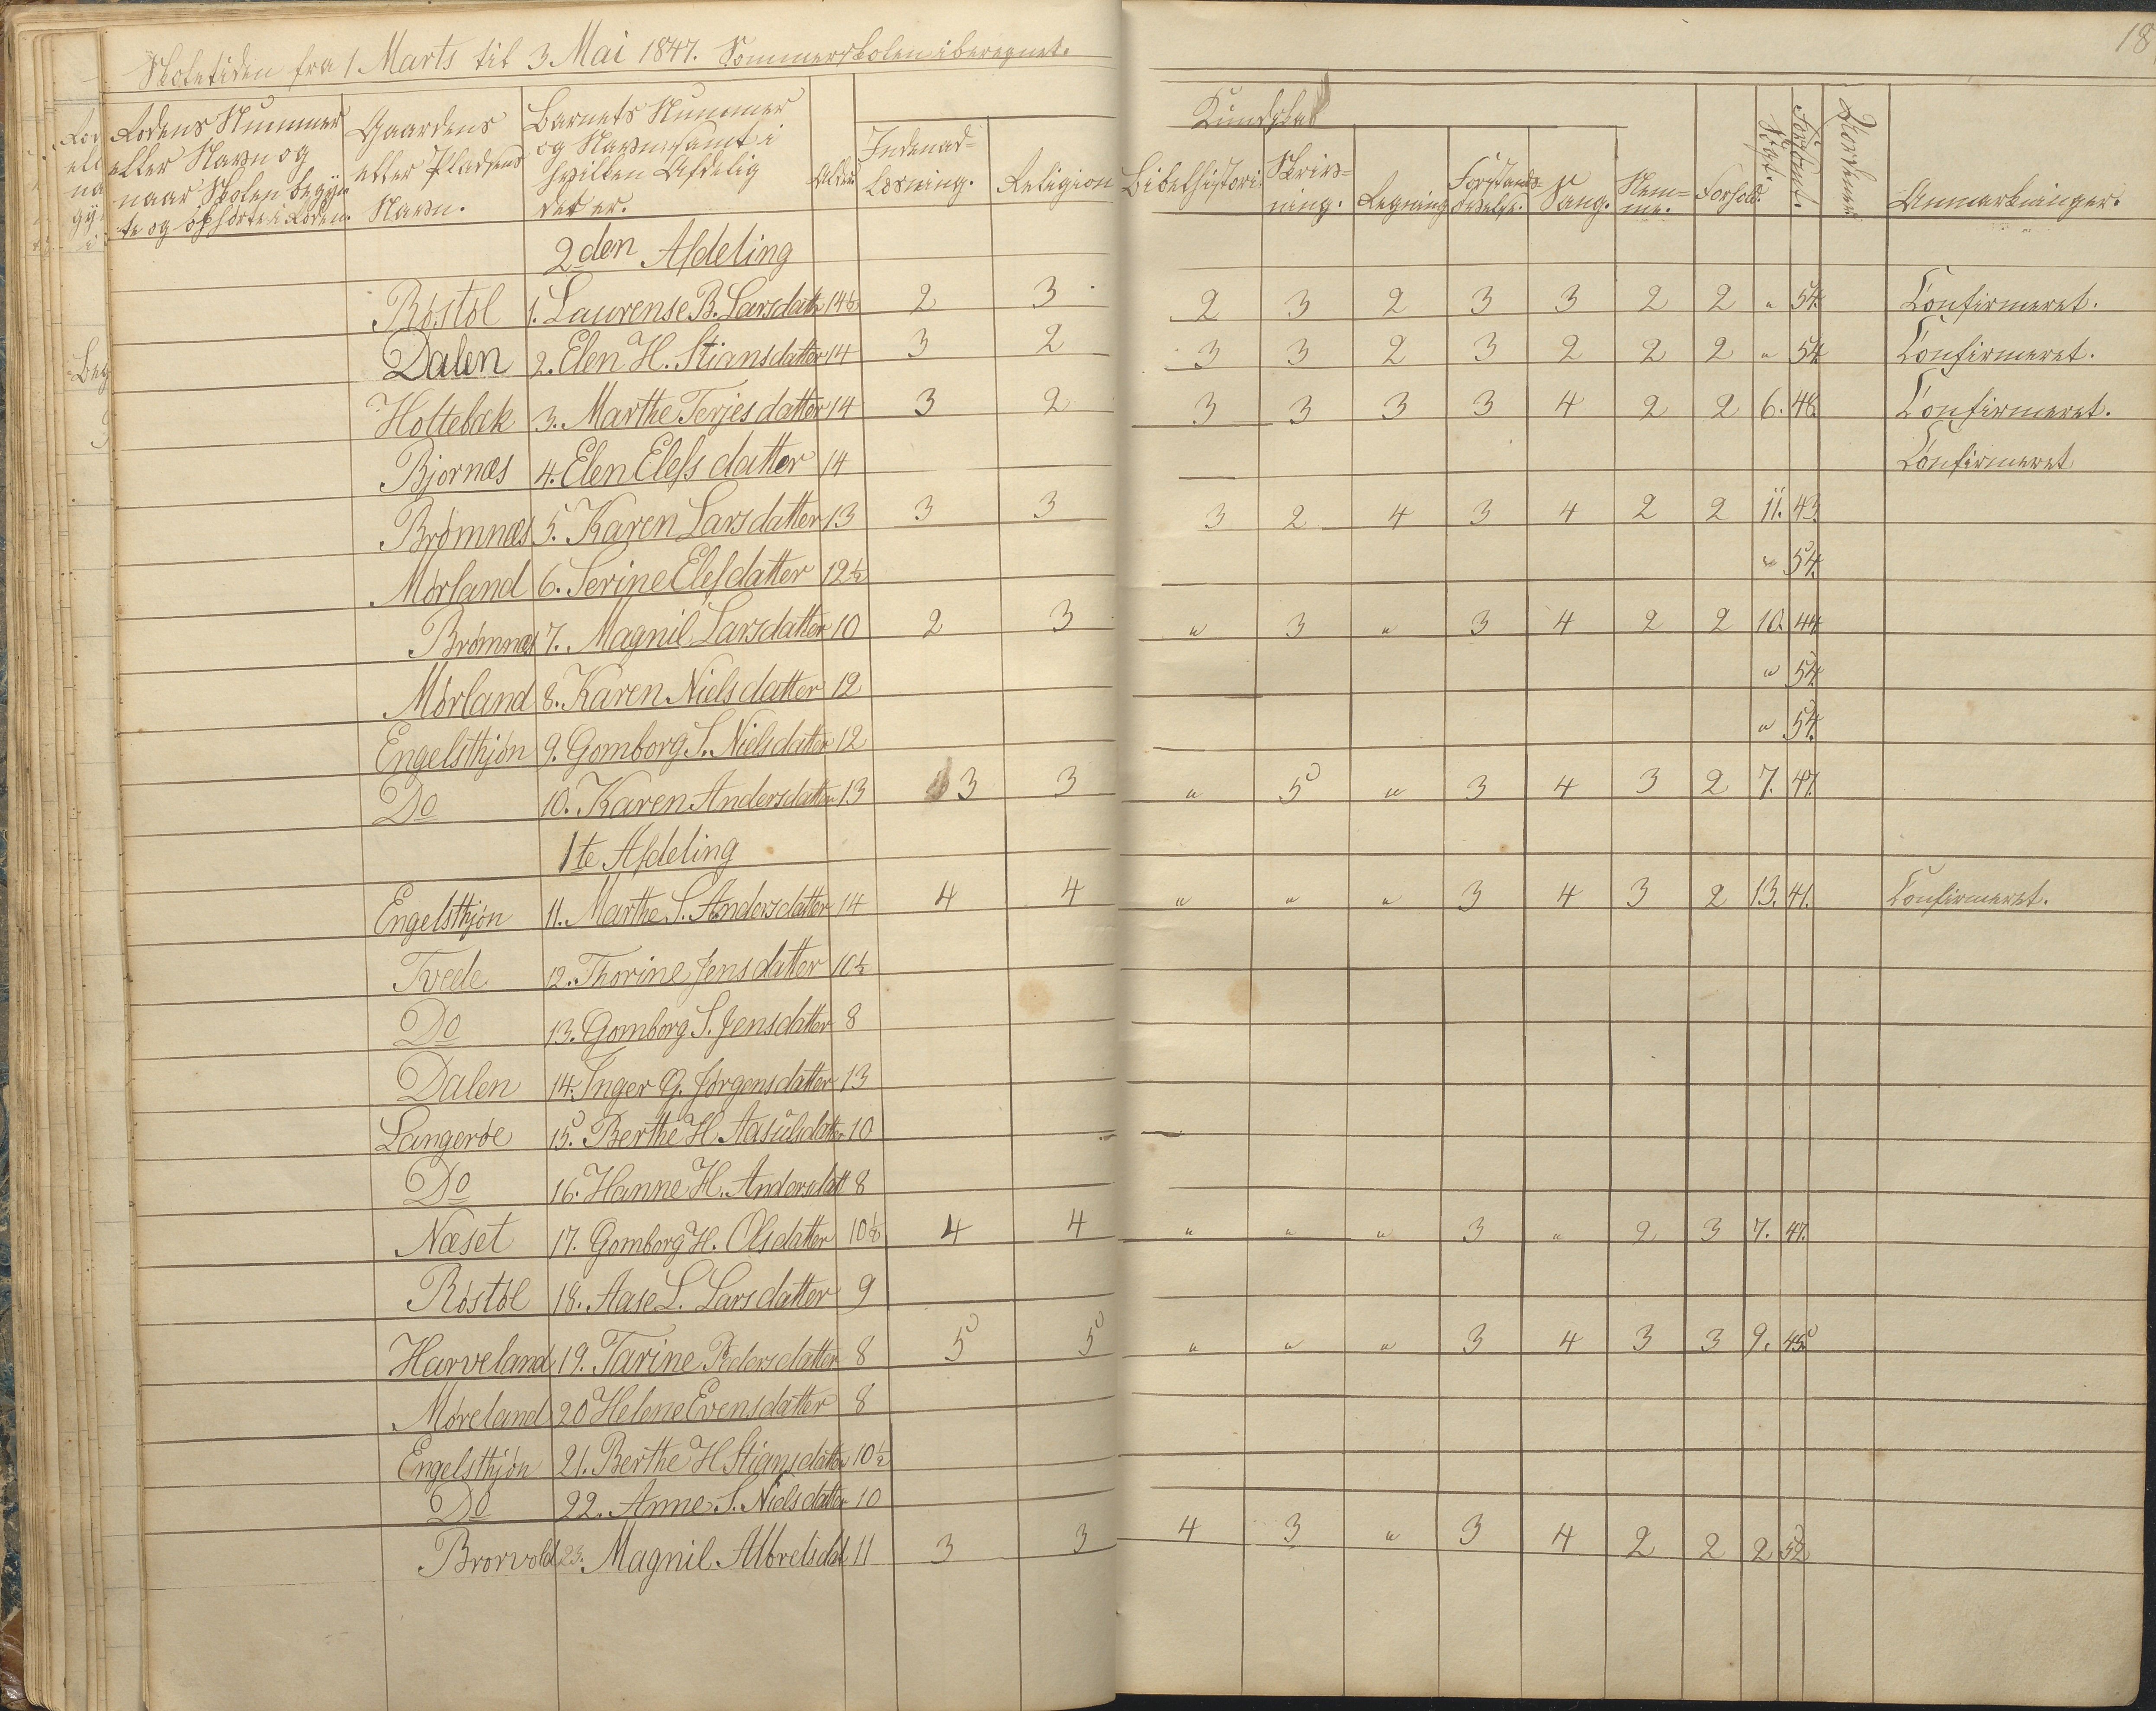 18
Skoletiden fra 1 Marts til 3 Mai 1847. Sommerskolen iberegnet.
Rodens Nummer eller Navn og naar Skolen begyndte og ophørte i Roden.
Gaardens eller Pladsens Navn.
Barnets Nummer og Navn samt i hvilken Afdelig det er.
Alder
Kundskab
Indenad-Læsning.
Religion
Bibelhistorie
Skrivning.
Regning
Forstands-øvelse.
Sang.
Nemme.
Forhold.
Søgt.
Forsømt.
Anmærkninger.
2den Afdeling
Røstøl 1. Laurense B. Larsdatter 14½ 2 3 2 3 2 3 3 2 2 " 54. Confirmeret.
Dalen 2. Elen H. Stiansdatter 14 3 2 3 3 2 3 2 2 2 " 54 Confirmeret.
Holtebæk 3. Marthe Terjesdatter 14 3 2 3 3 3 3 4 2 2 6. 48. Confirmeret.
Bjornæs 4. Elen Elefsdatter 14 Confirmeret
Brømnæs 5. Karen Larsdatter 13 3 3 3 2 4 3 4 2 2 11. 43.
Mørland 6. Serine Elefdatter 12½ " 54.
Brømnæs 7. Magnil Larsdatter 10 2 3 " 3 " 3 4 2 2 10. 44
Mørland 8. Karen Nielsdatter 12 " 54
Engelsthjøn 9. Gomborg S. Nielsdatter 12 " 54.
Do 10. Karen Andersdatter 13 3 3 " 5 " 3 4 3 2 7. 47.
1te Afdeling
Engelsthjøn 11. Marthe S. Andersdatter 14 4 4 " " " 3 4 3 2 13. 41. Confirmeret.
Tvede 12. Thorine Jensdatter 10½
Do 13. Gomborg S. Jensdatter 8
Dalen 14. Inger G. Jørgensdatter 13
Langerøe 15. Berthe H. Aasulsdatter 10
Do 16. Hanne H. Andersdatt 8
Næset 17. Gomborg H. Olsdatter 10½ 4 4 " " " 3 " 2 3 7. 47.
Røstøl 18. Aase L. Larsdatter 9
Harveland 19. Tarine Pedersdatter 8 5 5 " " " 3 4 3 3 9. 45
Møreland 20 Helene Evensdatter 8
Engelsthjøn 21. Berthe H Stiansdatter 10½
Do 22. Anne S. Nielsdatter 10
Brorvold 23. Magnil Albretsdat 11 3 3 4 3 " 3 4 2 2 2 52